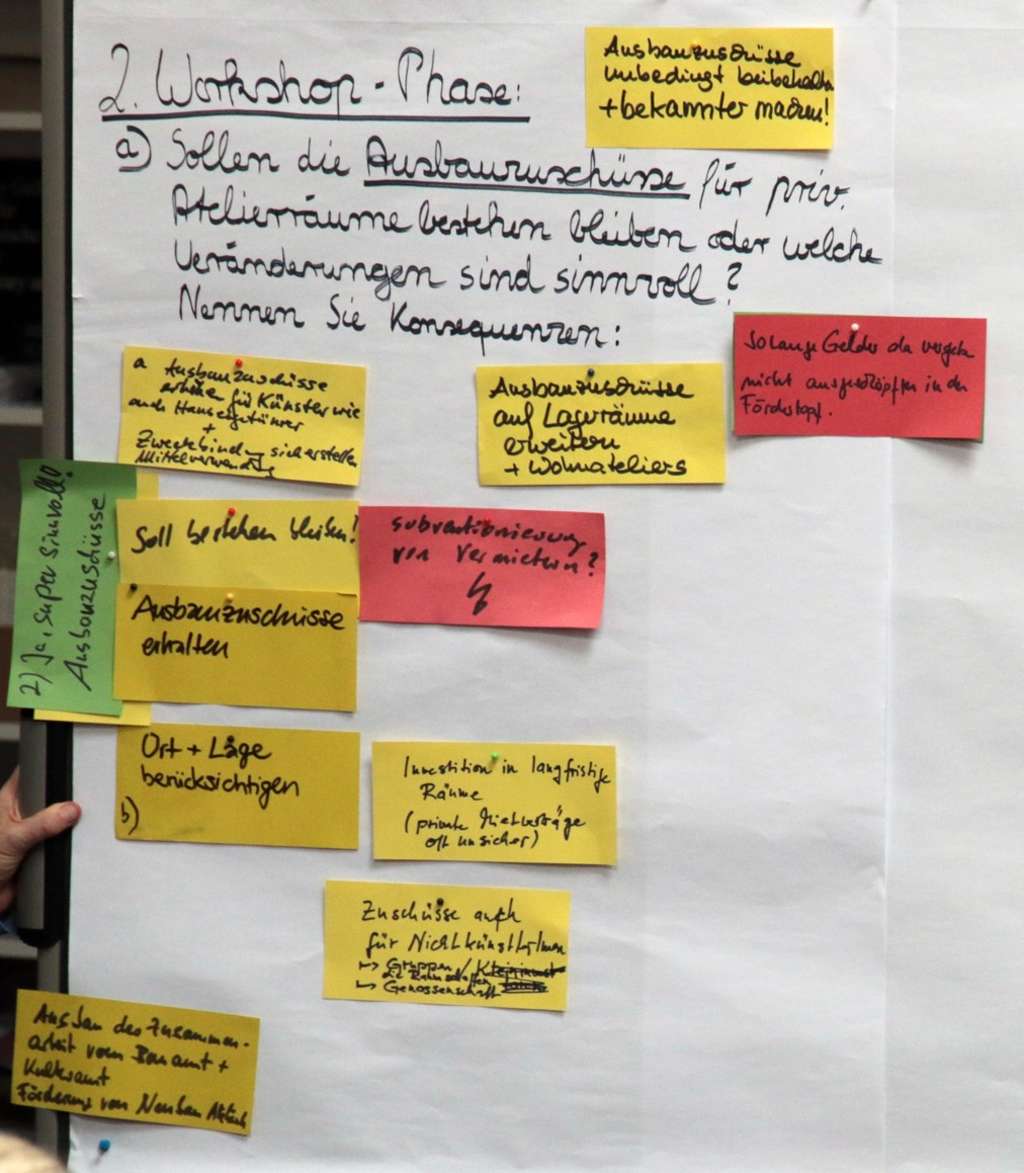 2. Workshop-Phase:
Ausbauzuschüsse
unbedingt beibehalten
+ bekannter machen!
a) Sollen die Ausbauzuschüsse für priv.
Atelierräume bestehen bleiben oder welche
Veränderungen sind sinnvoll?
Nennen Sie Konsequenzen:
Solange Gelder da vergeben
nicht ausgeschöpften in der
Fördertopf.
a Ausbauzuschüsse
erhöhen für Künstler wie
auch Hauseigentümer
+
Zweckbindung sicherstellen
Mittelverwendung
Ausbauzuschüsse
auf Lagerräume
erweitern
+ Wohnateliers
2) Ja, super sinnvoll!
Ausbauzuschüsse
Soll bestehen bleiben!
Subventionierung
von Vermietern?
Ausbauzuschüsse
erhalten
Ort + Lage
berücksichtigen
b)
Investition in langfristige
Räume
(private Mietverträge
oft unsicher)
Zuschüsse auch
für NichtkünstlerInnen
→ Gruppen /
die Raum schaffen
→ Genossenschaft
Ausbau der Zusammen-
arbeit vom Bauamt +
Kulturamt
Förderung von Neubau